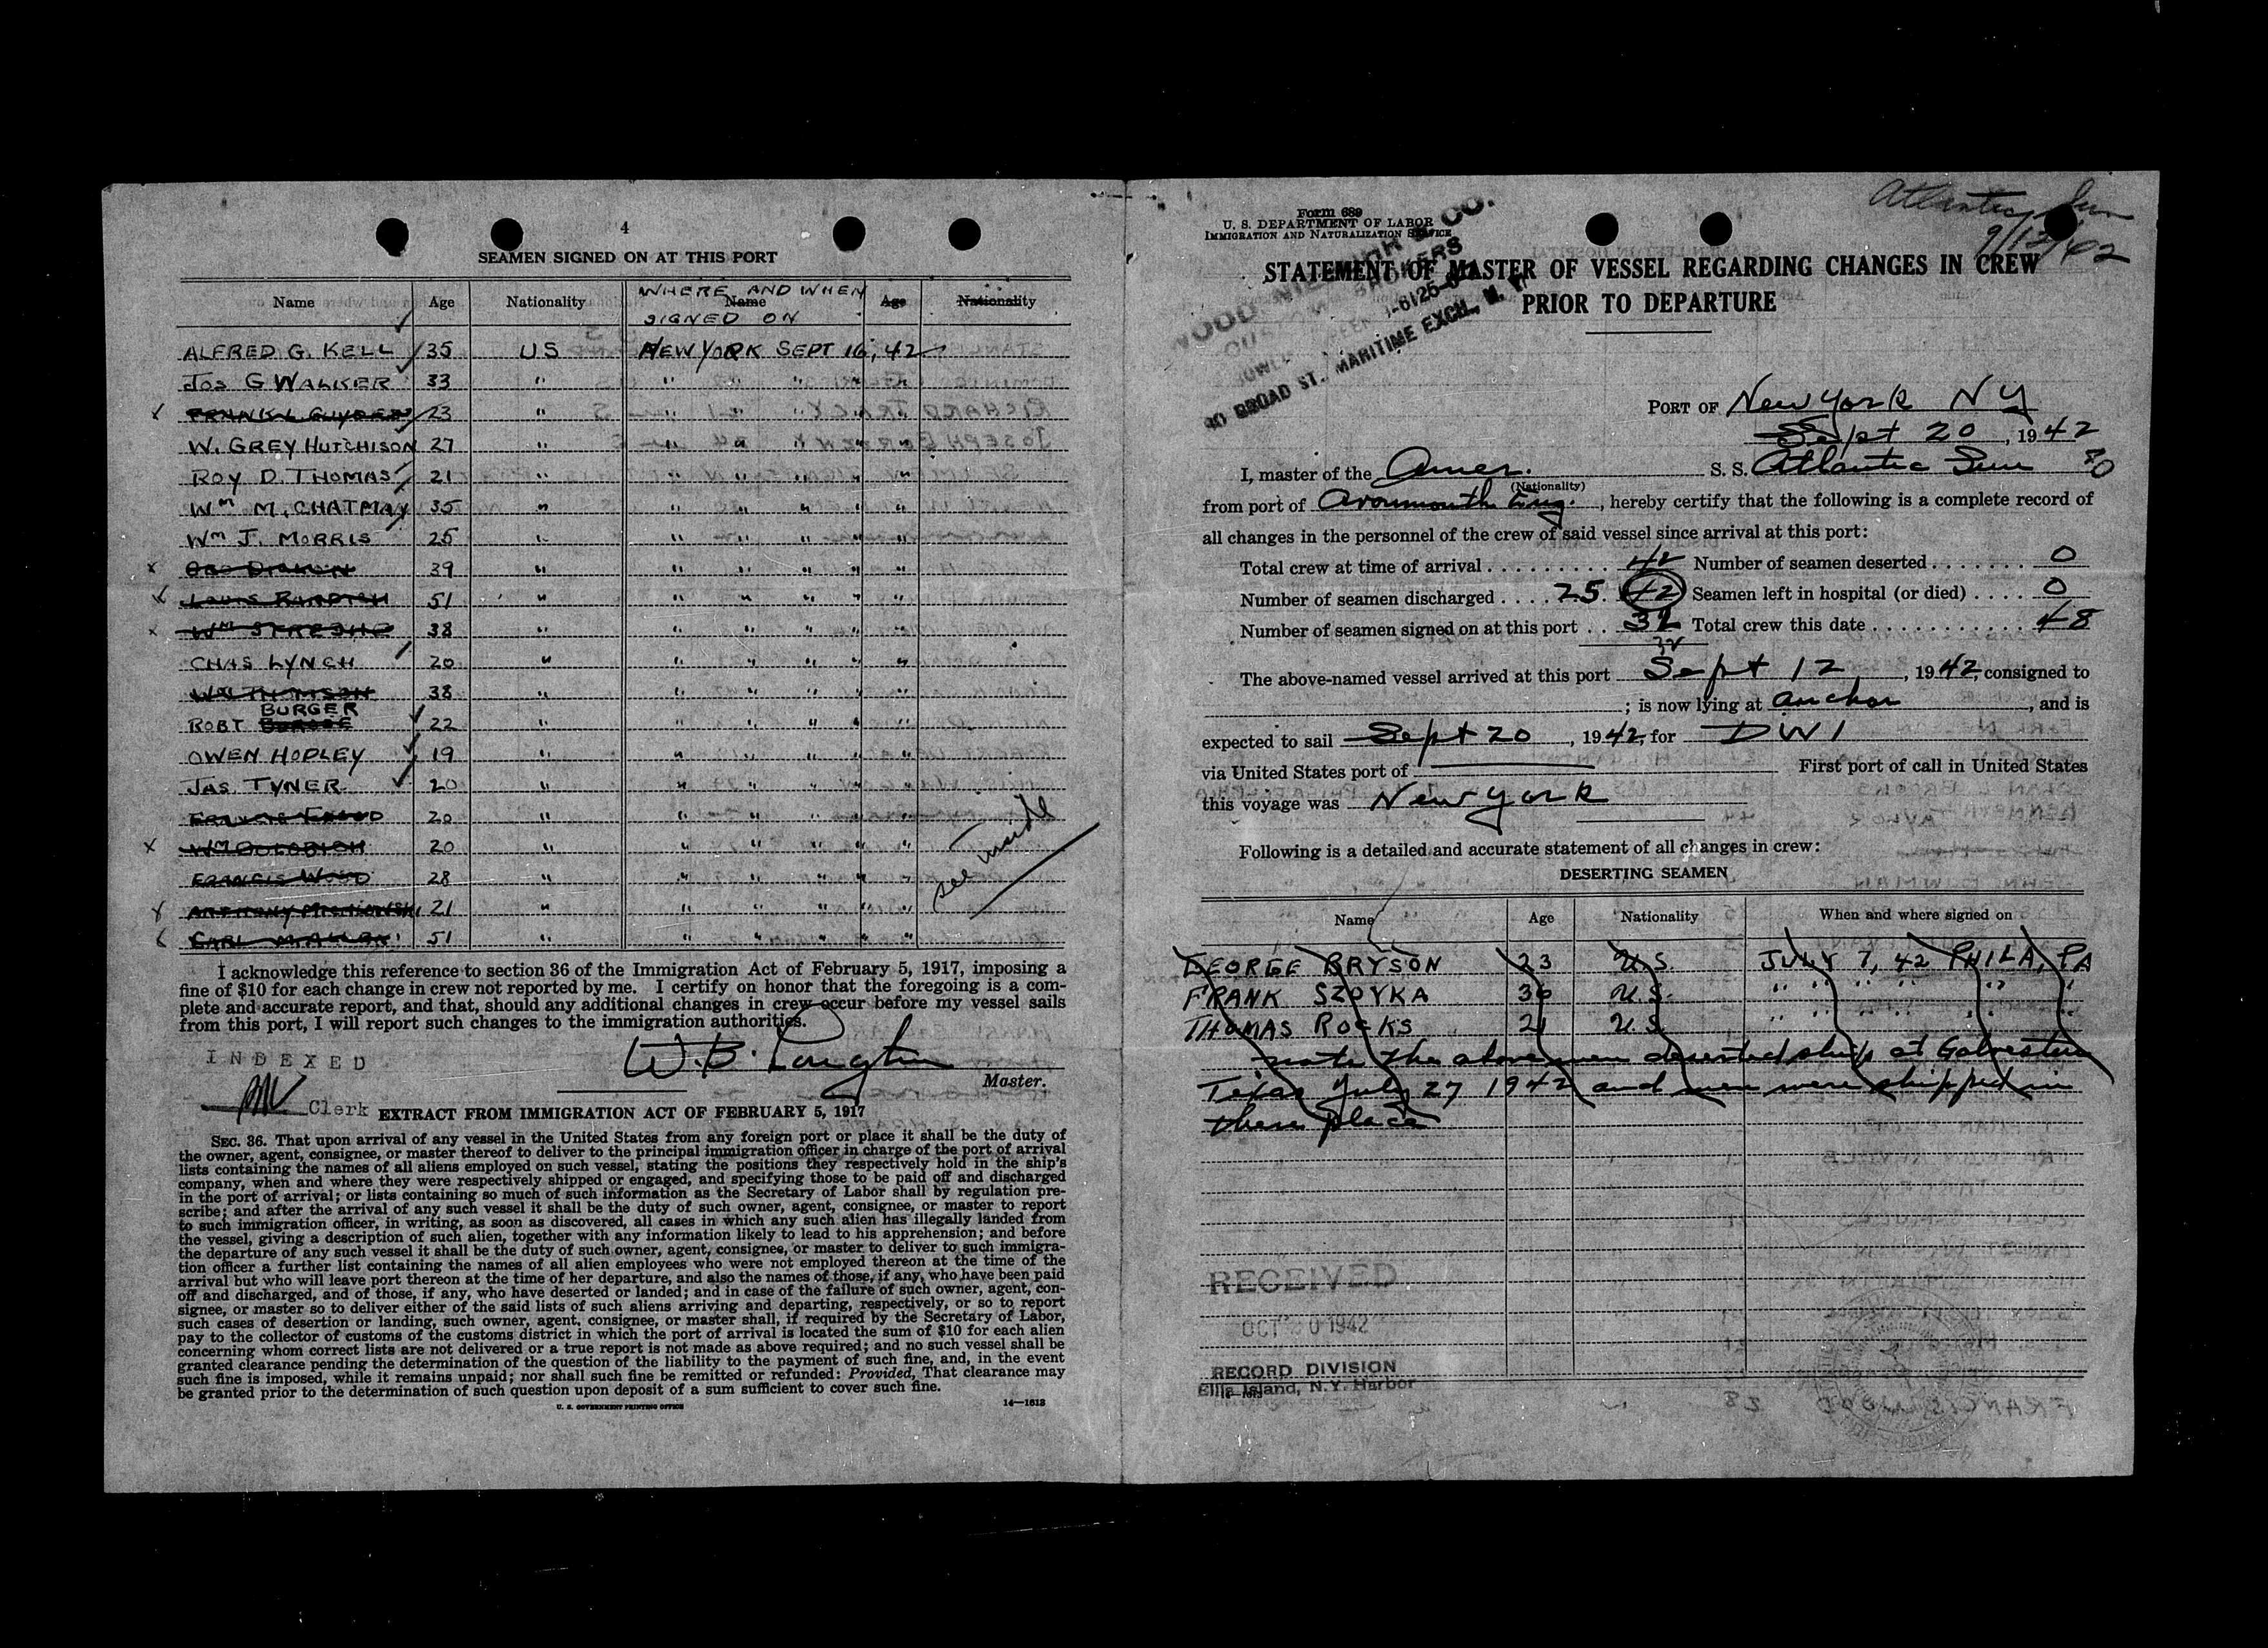 4
SEAMEN SIGNED ON AT THIS PORT
Name Age Nationality WHERE AND WHEN SIGNED ON Name Age Nationality
ALFRED G. KELL 35 US NEW YORK SEPT 16, 42
JOS G WALKER 33 " " " " "
23 " " " " "
W. GREY HUTCHISON 27 " " " " "
ROY D. THOMAS 21 " " " " "
Wm M. CHATMAN 35 " " " " "
Wm J. MORRIS 25 " " " " "
39 " " " " "
LOUIS 51 " " " " "
Wm 38 " " " " "
CHAS LYNCH 20 " " " " "
38 " " " " "
ROBT BURGER 22 " " " " "
OWEN HODLEY 19 " " " " "
JAS TYNER 20 " " " " "
FRANCIS 20 " " " " "
Wm 20 " " " " "
FRANCIS WOOD 28 " " " " "
ANTHONY 21 " " " " "
CARL 51 " " " " "
see inside
I acknowledge this reference to section 36 of the Immigration Act of February 5, 1917, imposing a
fine of $10 for each change in crew not reported by me. I certify on honor that the foregoing is a com-
plete and accurate report, and that, should any additional changes in crew occur before my vessel sails
from this port, I will report such changes to the immigration authorities.
INDEXED
W. B.
Master.
Clerk
EXTRACT FROM IMMIGRATION ACT OF FEBRUARY 5, 1917
SEC. 36. That upon arrival of any vessel in the United States from any foreign port or place it shall be the duty of
the owner, agent, consignee, or master thereof to deliver to the principal immigration officer in charge of the port of arrival
lists containing the names of all aliens employed on such vessel, stating the positions they respectively hold in the ship's
company, when and where they were respectively shipped or engaged, and specifying those to be paid off and discharged
in the port of arrival; or lists containing so much of such information as the Secretary of Labor shall by regulation pre-
scribe; and after the arrival of any such vessel it shall be the duty of such owner, agent, consignee, or master to report
to such immigration officer, in writing, as soon as discovered, all cases in which any such alien has illegally landed from
the vessel, giving a description of such alien, together with any information likely to lead to his apprehension; and before
the departure of any such vessel it shall be the duty of such owner, agent, consignee, or master to deliver to such immigra-
tion officer a further list containing the names of all alien employees who were not employed thereon at the time of the
arrival but who will leave port thereon at the time of her departure, and also the names of those, if any, who have been paid
off and discharged, and of those, if any, who have deserted or landed; and in case of the failure of such owner, agent, con-
signee, or master so to deliver either of the said lists of such aliens arriving and departing, respectively, or so to report
such cases of desertion or landing, such owner, agent, consignee, or master shall, if required by the Secretary of Labor,
pay to the collector of customs of the customs district in which the port of arrival is located the sum of $10 for each alien
concerning whom correct lists are not delivered or a true report is not made as above required; and no such vessel shall be
granted clearance pending the determination of the question of the liability to the payment of such fine, and, in the event
such fine is imposed, while it remains unpaid; nor shall such fine be remitted or refunded: Provided, That clearance may
be granted prior to the determination of such question upon deposit of a sum sufficient to cover such fine.
U. S. GOVERNMENT PRINTING OFFICE 14—1613
Form 689
U. S. DEPARTMENT OF LABOR
IMMIGRATION AND NATURALIZATION SERVICE
Atlantic Sun
9/12/42
CO.
BROKERS
BROAD ST., MARITIME EXCH.
STATEMENT OF MASTER OF VESSEL REGARDING CHANGES IN CREW
PRIOR TO DEPARTURE
PORT OF New York NY
Sept 20, 1942
I, master of the Amer. S. S. Atlantic Sun
(Nationality)
from port of Avonmouth Eng., hereby certify that the following is a complete record of
all changes in the personnel of the crew of said vessel since arrival at this port:
Total crew at time of arrival 42 Number of seamen deserted 0
Number of seamen discharged 25 42 Seamen left in hospital (or died) 0
Number of seamen signed on at this port Total crew this date 48
The above-named vessel arrived at this port Sept 12, 1942, consigned to
; is now lying at anchor, and is
expected to sail Sept 20, 1942, for DWI
via United States port of First port of call in United States
this voyage was New York
Following is a detailed and accurate statement of all changes in crew:
DESERTING SEAMEN
Name Age Nationality When and where signed on
GEORGE BRYSON 23 U.S. JULY 7, 42 PHILA, PA
FRANK SZOYKA 36 U.S. " " " " " "
THOMAS ROCKS 21 U.S. " " " " " "
note the above men deserted ship at Galveston
Texas July 27 1942 and men were shipped in
there place
RECEIVED
OCT 1942
RECORD DIVISION
Ellis Island, N.Y. Harbor